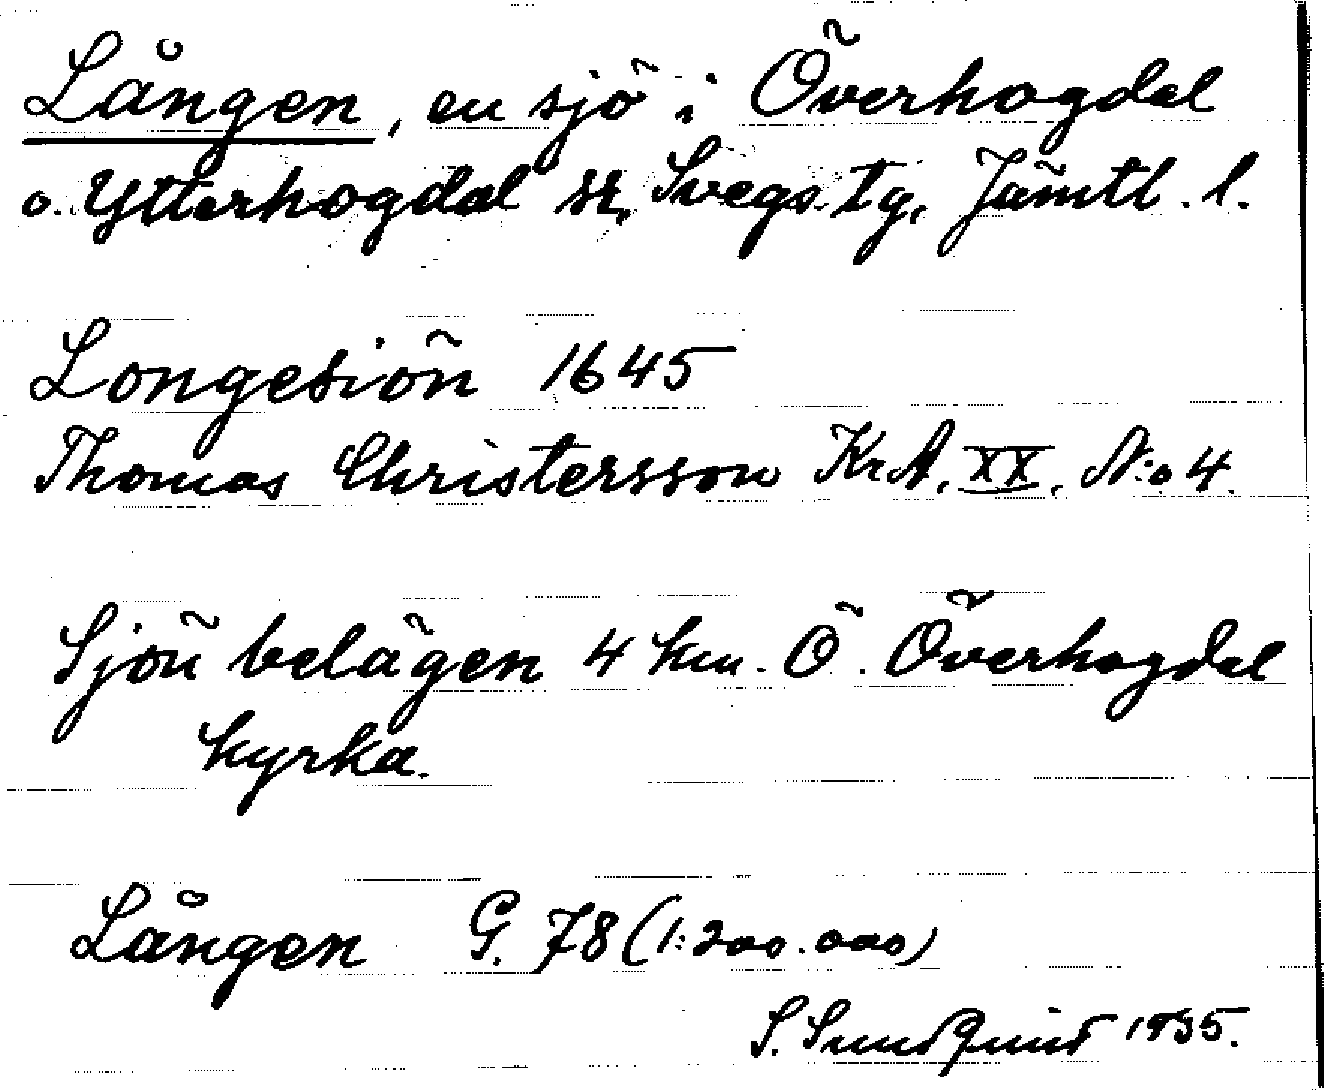 Lången, en sjö i Överhogdal
o. Ytterhogdal sr, Svegs tg, Jämtl. l.
Longesiön 1645
Thomas Christersson Kr.A. XX. N:o 4.
Sjön belägen 4 km. Ö. Överhogdal
kyrka.
Lången G. 78 (1:200.000)
S. Sundquist 1935.